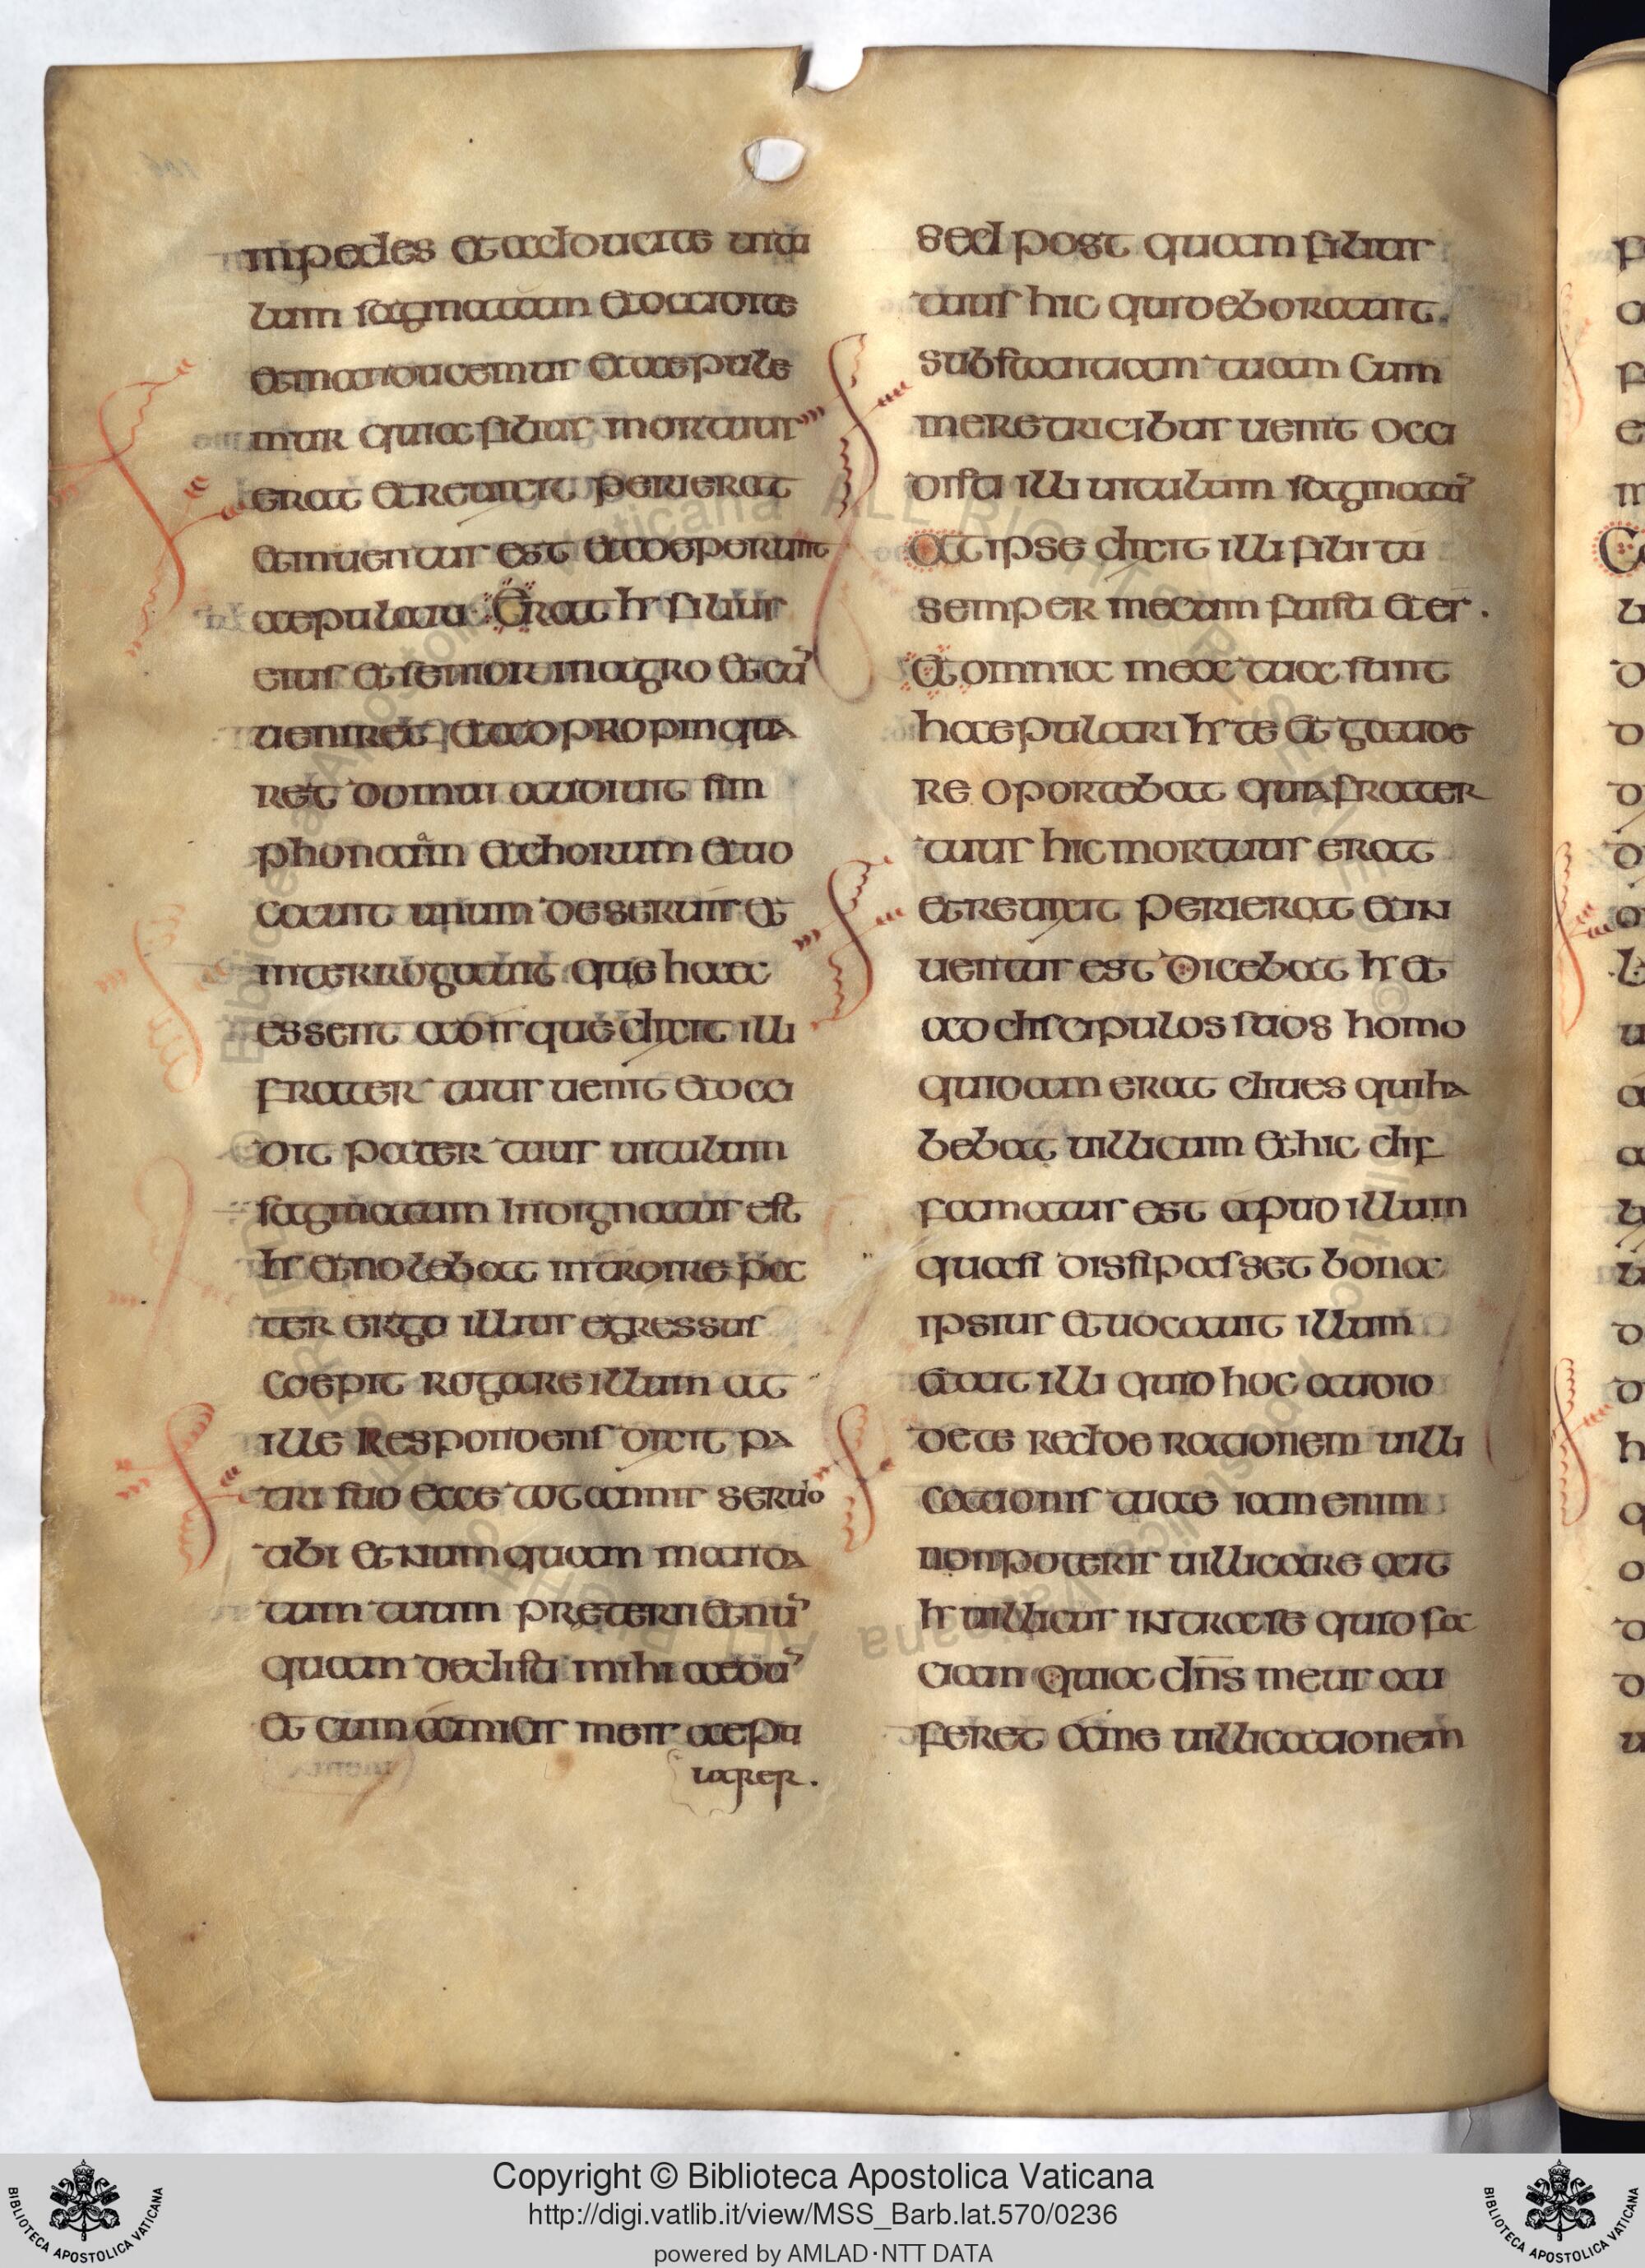 inpedes et adducite uitu
lum saginatum et occidite
et manducemur et aepule
mur quia filius mortuus
erat et reuixit perierat
et inuentus est et coeperunt
aepulari Erat hr filius
eius et senior in agro et cũ
ueniret et adpropinqua
ret domui audiuit sim
phoniam et chorum et uo
cauit unum de seruis et
interrogauit que haec
essent adisque dixit illi
frater tuus uenit et occi
dit pater tuus uitulum
saginatum Indignatus est
hr et nolebat introire pa
ter ergo illius egressus
coepit rogare illum at
ille Respondens dixit pa
tri suo Ecce tot annis seruio
tibi et numquam manda
tum tuum preterii et nũ
quam dedisti mihi aedũ
et cum amicis meis aepu
larer.
sed post quam filius
tuus hic qui deborauit.
substantiam tuam Cum
meretricibus uenit occi
disti illi uitulum saginatũ
At ipse dixit illi fili tu
semper mecum fuisti et es.
et omnia mea tua sunt
haepulari hr te et gaude
re oportebat quia frater
tuus hic mortuus erat
et reuixit perierat et in
uentus est Dicebat hr et
ad discipulos suos homo
quidam erat diues qui ha
bebat uillicum et hic dif
famatus est apud illum
quasi dissipasset bona
ipsius et uocauit illum
et ait illi quid hoc audio
de te redde rationem uilli
cationis tuae iam enim
non poteris uillicare ait
hr uillicus intra se quid fa
ciam quia dns̄ meus au
feret a me uillicationem
Copyright © Biblioteca Apostolica Vaticana
http://digi.vatlib.it/view/MSS_Barb.lat.570/0236
powered by AMLAD·NTT DATA
BIBLIOTECA APOSTOLICA VATICANA
BIBLIOTECA APOSTOLICA VATICANA